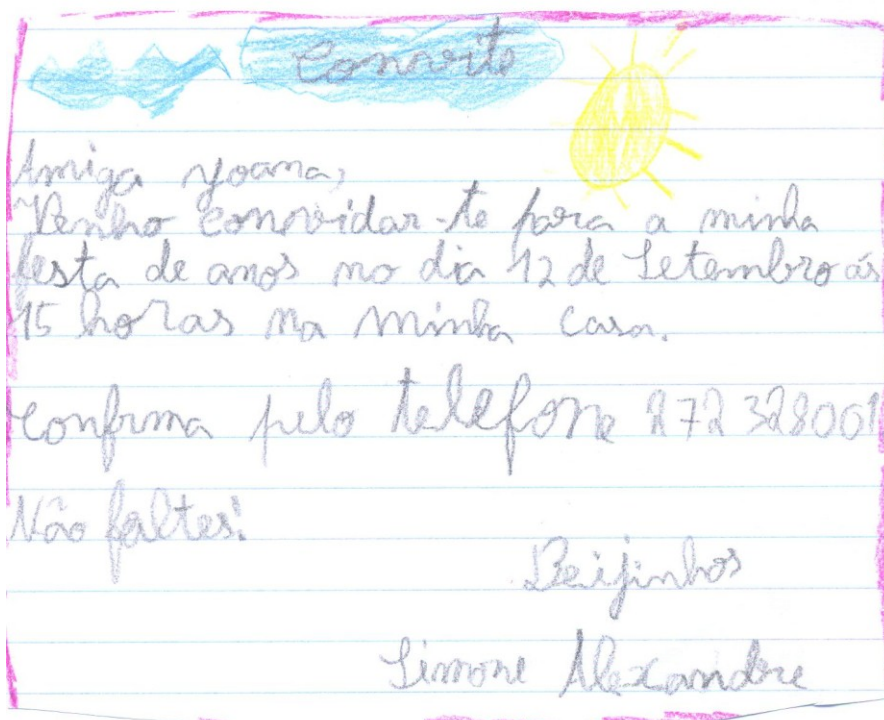 Convite
Amiga Yoana,
Venho convidar-te para a minha
festa de anos no dia 12 de Setembro ás
15 horas na minha casa.
confirma pelo telefone 272 328001
Não faltes!
Beijinhos
Simone Alexandre